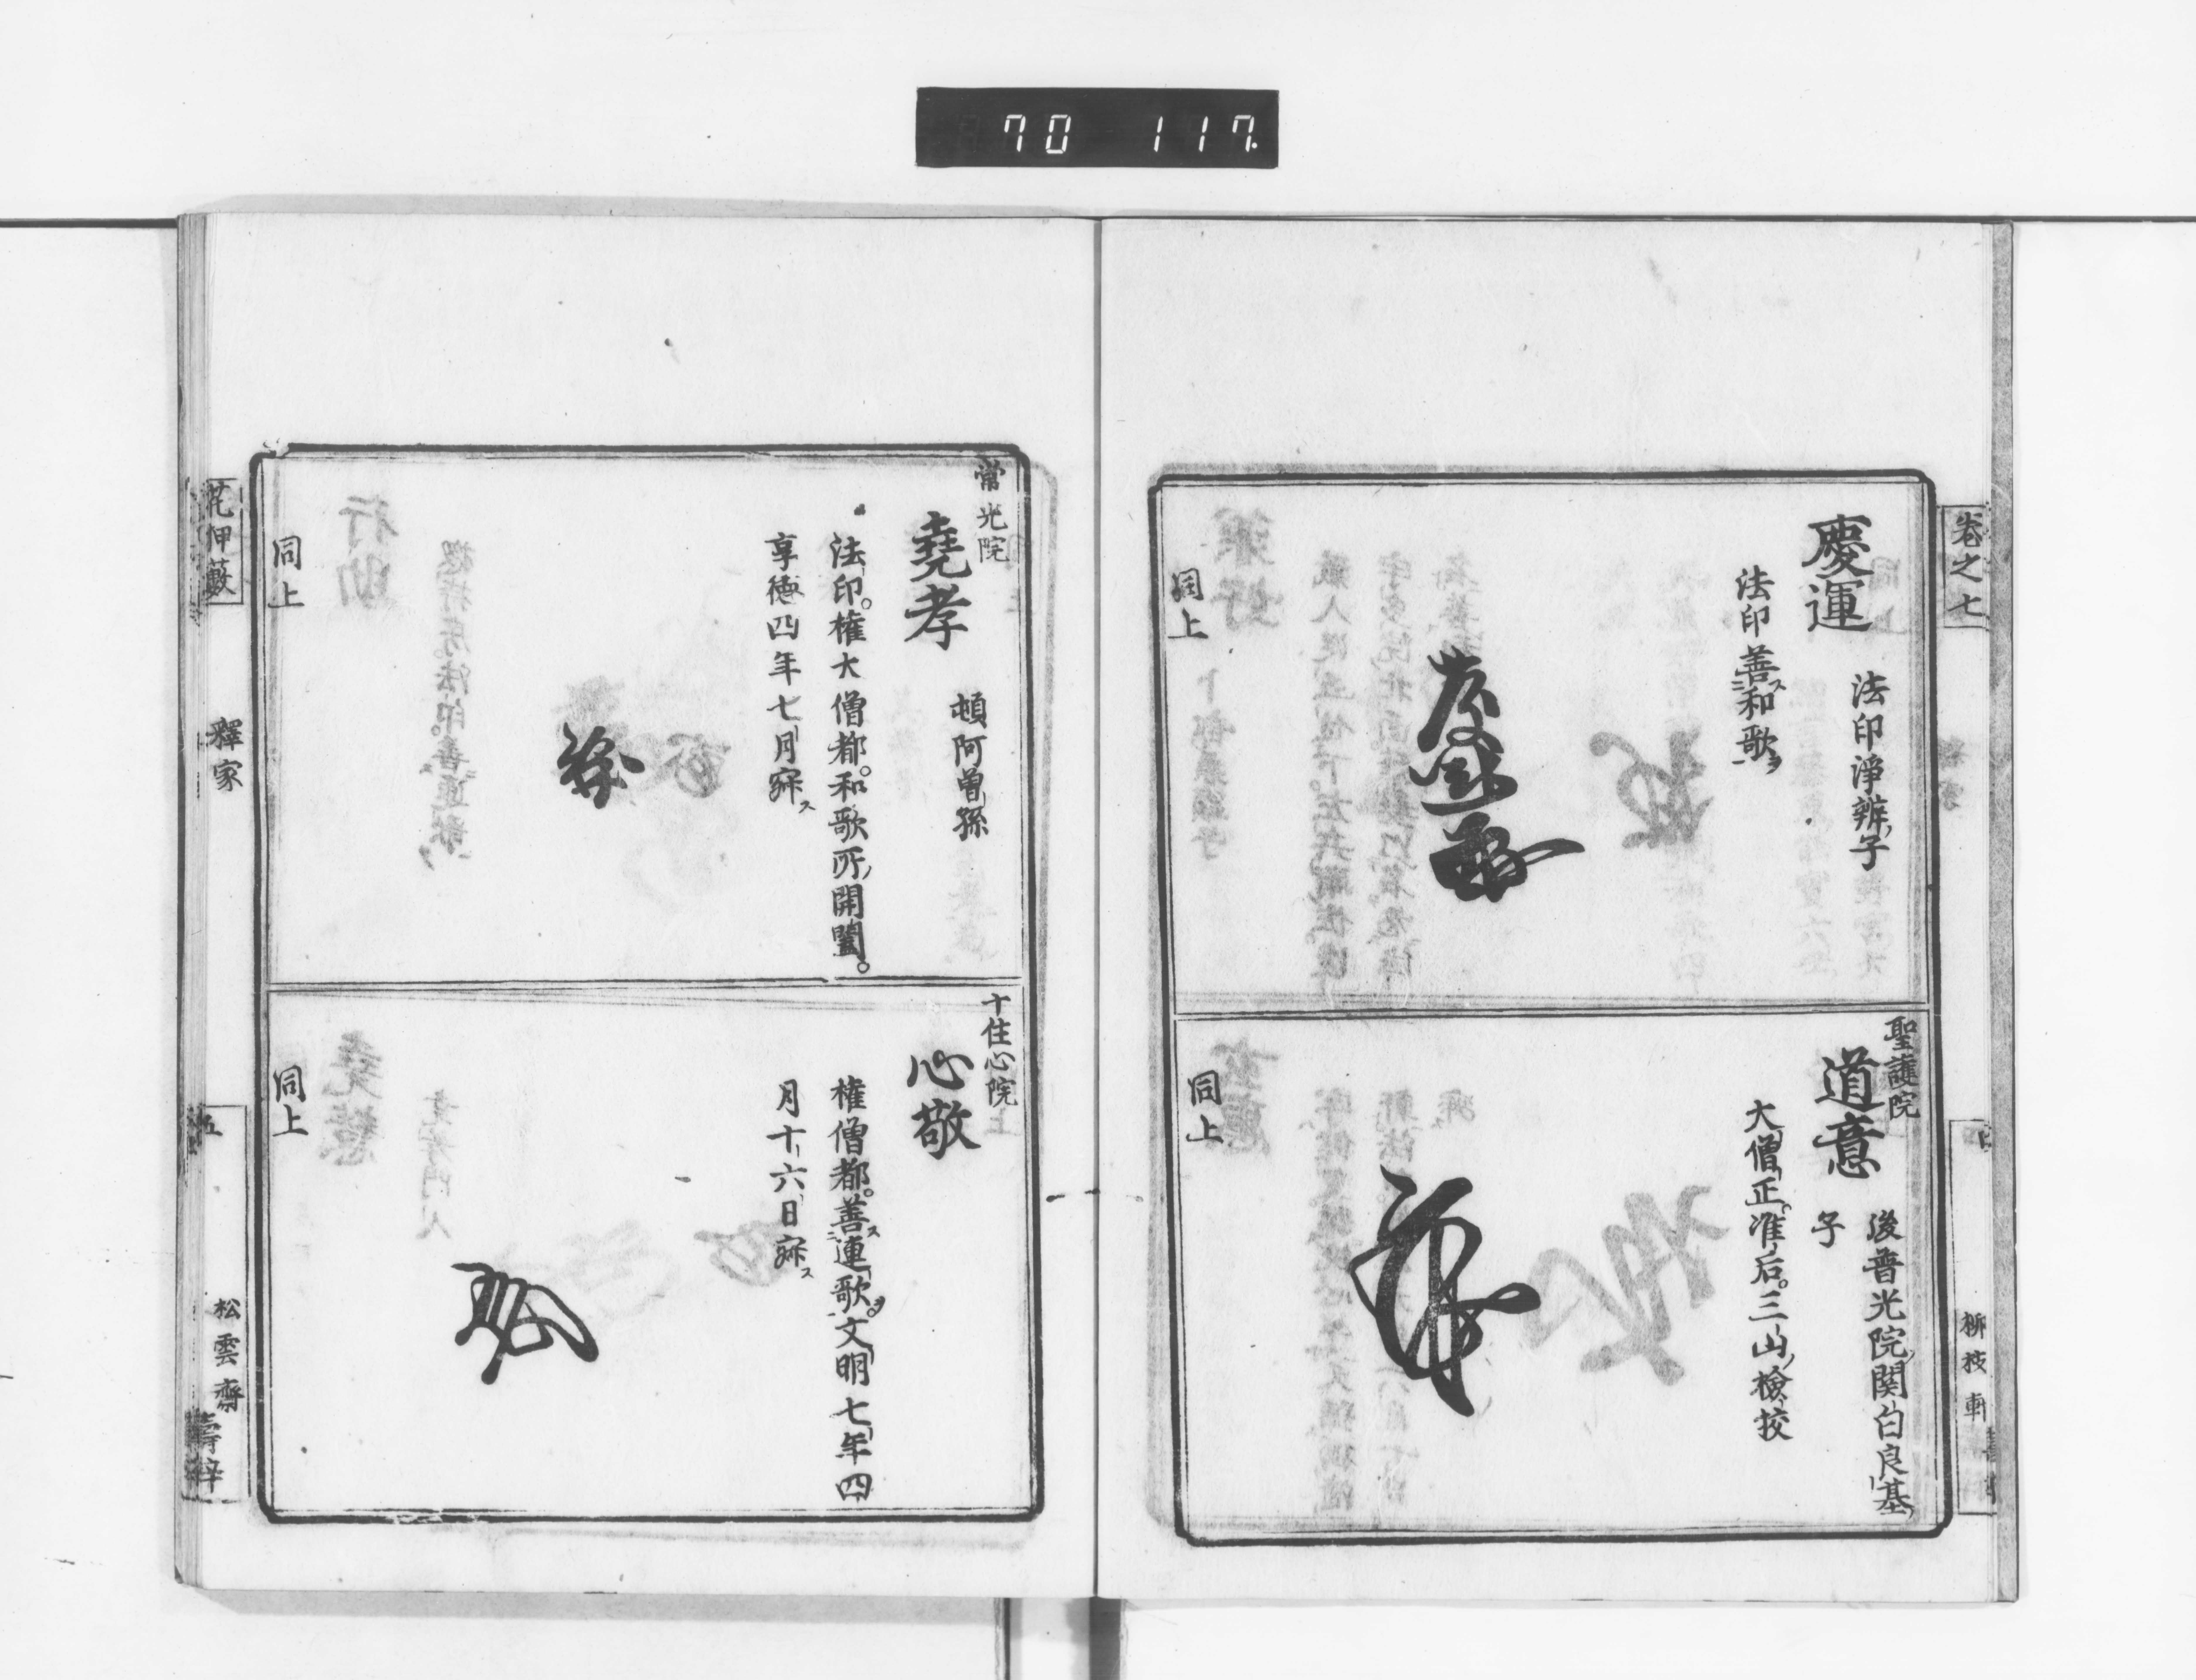 70 117
卷之七
慶運
法印淨辨子
法印善ス和歌ヲ
同上
聖護院
道意
後普光院関白良基
子
大僧正准后。三山檢挍
同上
柳枝軒
常光院
堯孝
頓阿曽孫
法印。権大僧都。和歌所開闔。
享徳四年七月寂ス
同上
十住心院
心敬
権僧都。善ス連歌ヲ。文明七年四
月十六日寂ス
同上
花押藪
釋家
五
松雲齋
壽梓